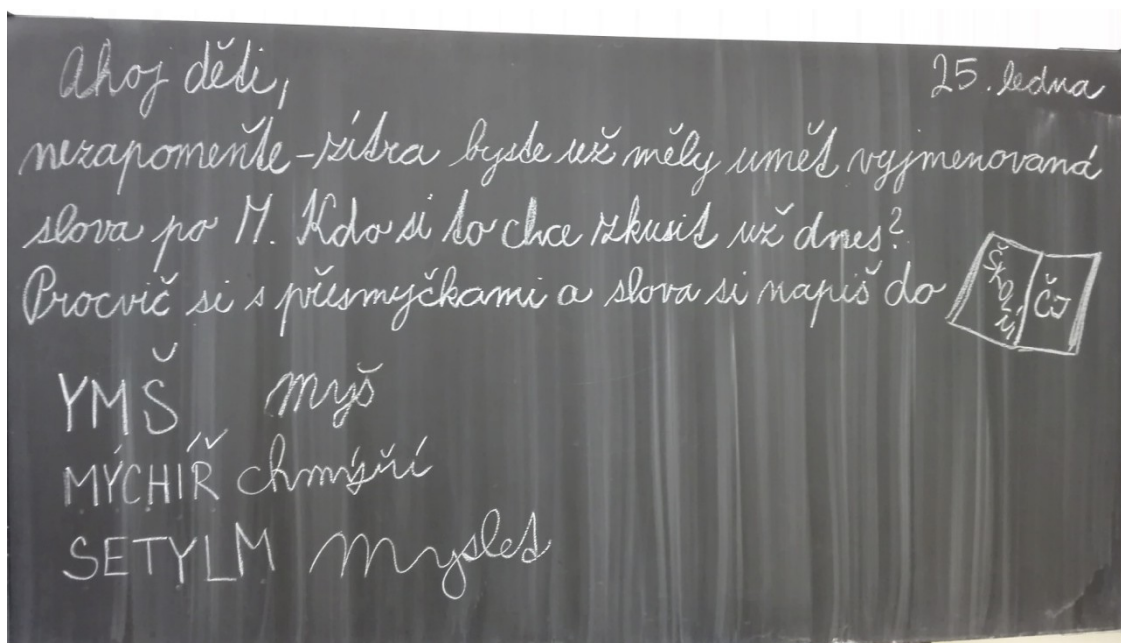 Ahoj děti,
25. ledna
nezapomeňte - zítra byste už měly umět vyjmenovaná
slova po M. Kdo si to chce zkusit už dnes?
Procvič si s přesmyčkami a slova si napiš do
ŠKOLNÍ
ČJ
YMŠ myš
MÝCHÍŘ chmýří
SETYLM Myslet